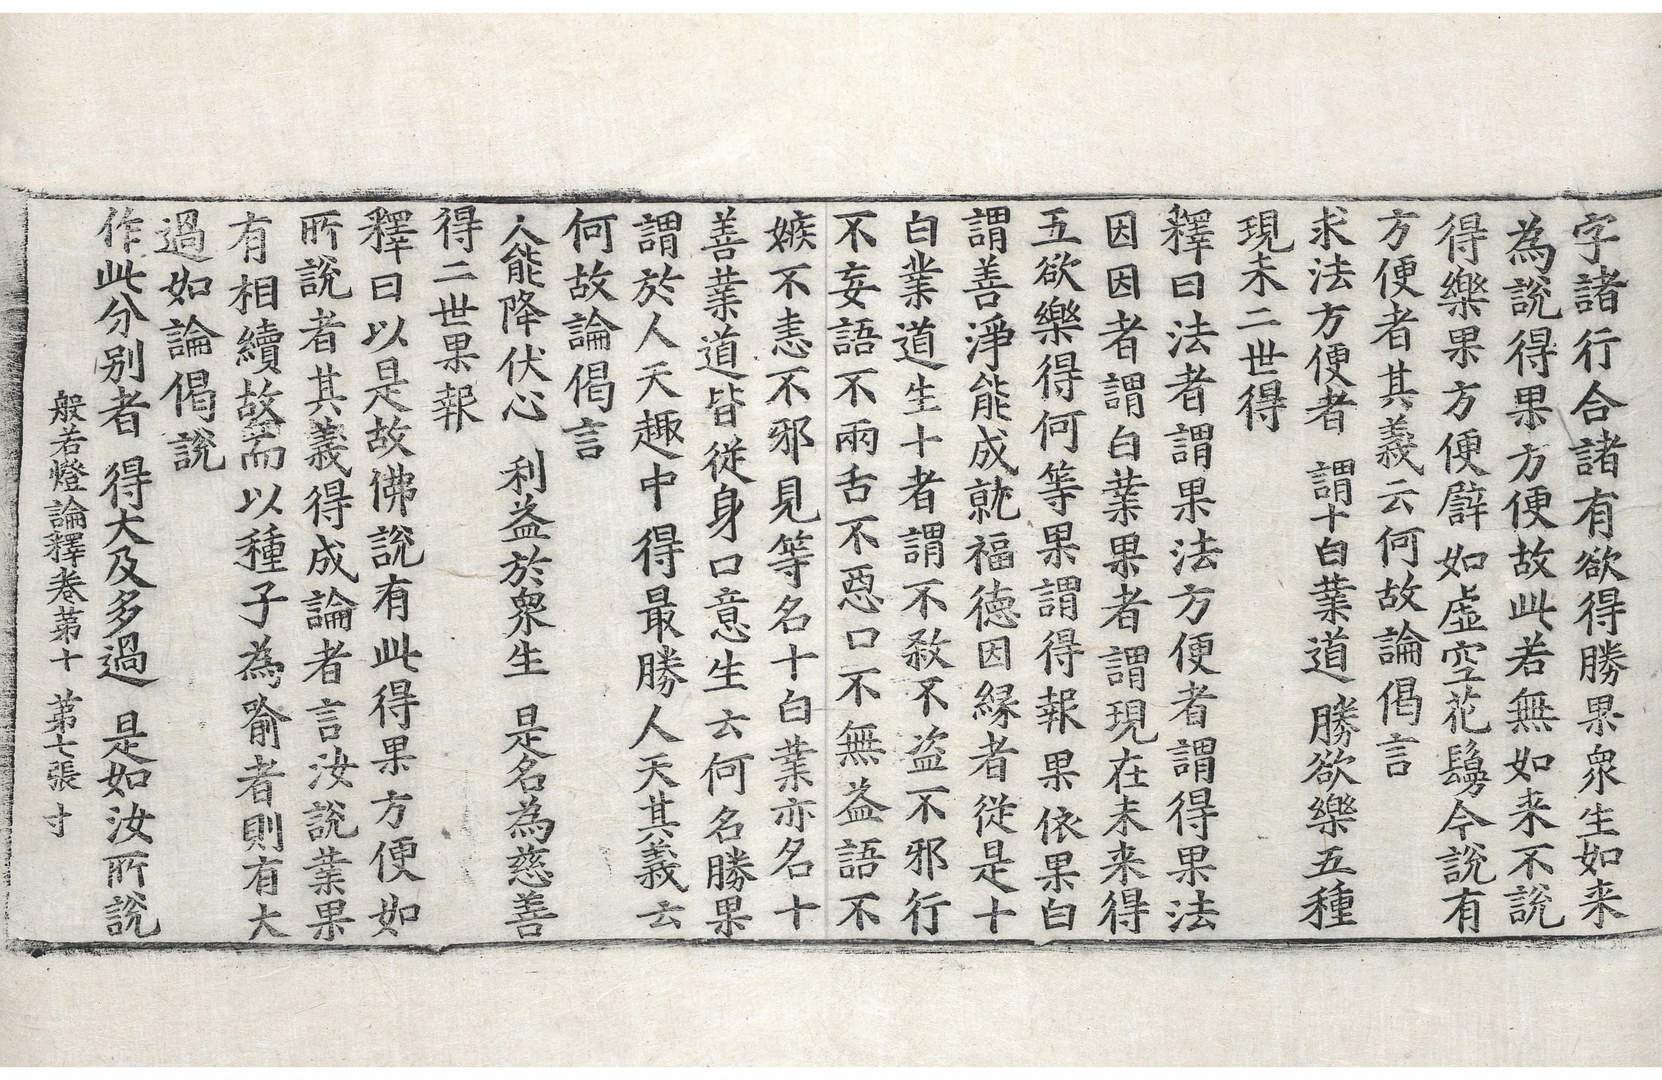 字諸行合諸有欲得勝果衆生如来
為說得果方便故此若無如来不說
得樂果方便譬如虛空花鬘今說有
方便者其義云何故論偈言
求法方便者　謂十白業道　勝欲樂五種
現未二世得
釋曰法者謂果法方便者謂得果法
因因者謂白業果者謂現在未来得
五欲樂得何等果謂得報果依果白
謂善淨能成就福德因緣者從是十
白業道生十者謂不殺不盜不邪行
不妄語不兩舌不惡口不無益語不
嫉不恚不邪見等名十白業亦名十
善業道皆從身口意生云何名勝果
謂於人天趣中得最勝人天其義云
何故論偈言
人能降伏心　利益於衆生　是名為慈善
得二世果報
釋曰以是故佛說有此得果方便如
所說者其義得成論者言汝說業果
有相續故而以種子為喻者則有大
過如論偈說
作此分別者　得大及多過　是如汝所說
般若燈論釋卷苐十　第七張　寸